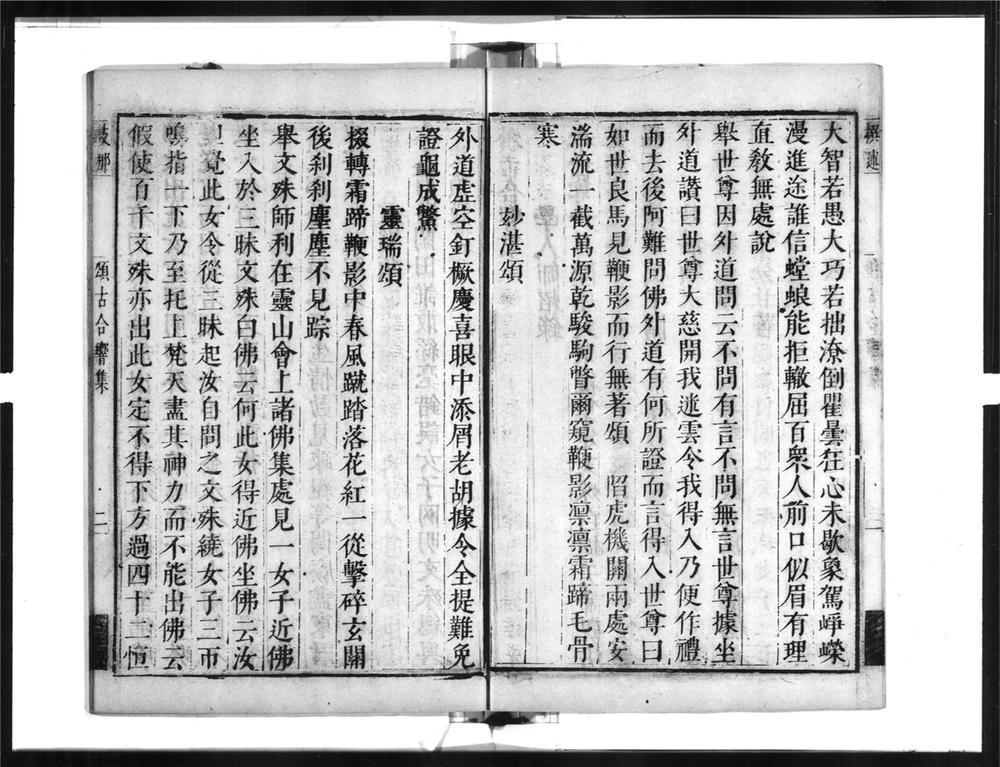 大智若愚大巧若拙潦倒瞿曇狂心未歇象駕崢嶸
漫進途誰信螳蜋能拒轍屈百衆人前口似眉有理
直教無處說
舉世尊因外道問云不問有言不問無言世尊據坐
外道讚曰世尊大慈開我迷雲令我得入乃便作禮
而去後阿難問佛外道有何所證而言得入世尊曰
如世良馬見鞭影而行無著頌 陷虎機關兩處安
湍流一截萬源乾駿駒瞥爾窺鞭影凛凛霜蹄毛骨
寒
玅湛頌
外道虛空釘橛慶喜眼中添屑老胡據令全提難免
證龜成鱉
靈瑞頌
掇轉霜蹄鞭影中春風蹴踏落花紅一從擊碎玄關
後刹刹塵塵不見踪
舉文殊師利在靈山會上諸佛集處見一女子近佛
坐入於三昧文殊白佛云何此女得近佛坐佛云汝
但覺此女令從三昧起汝自問之文殊繞女子三帀
鳴指一下乃至托上梵天盡其神力而不能出佛云
假使百千文殊亦出此女定不得下方過四十二恒
頌古合響集
二